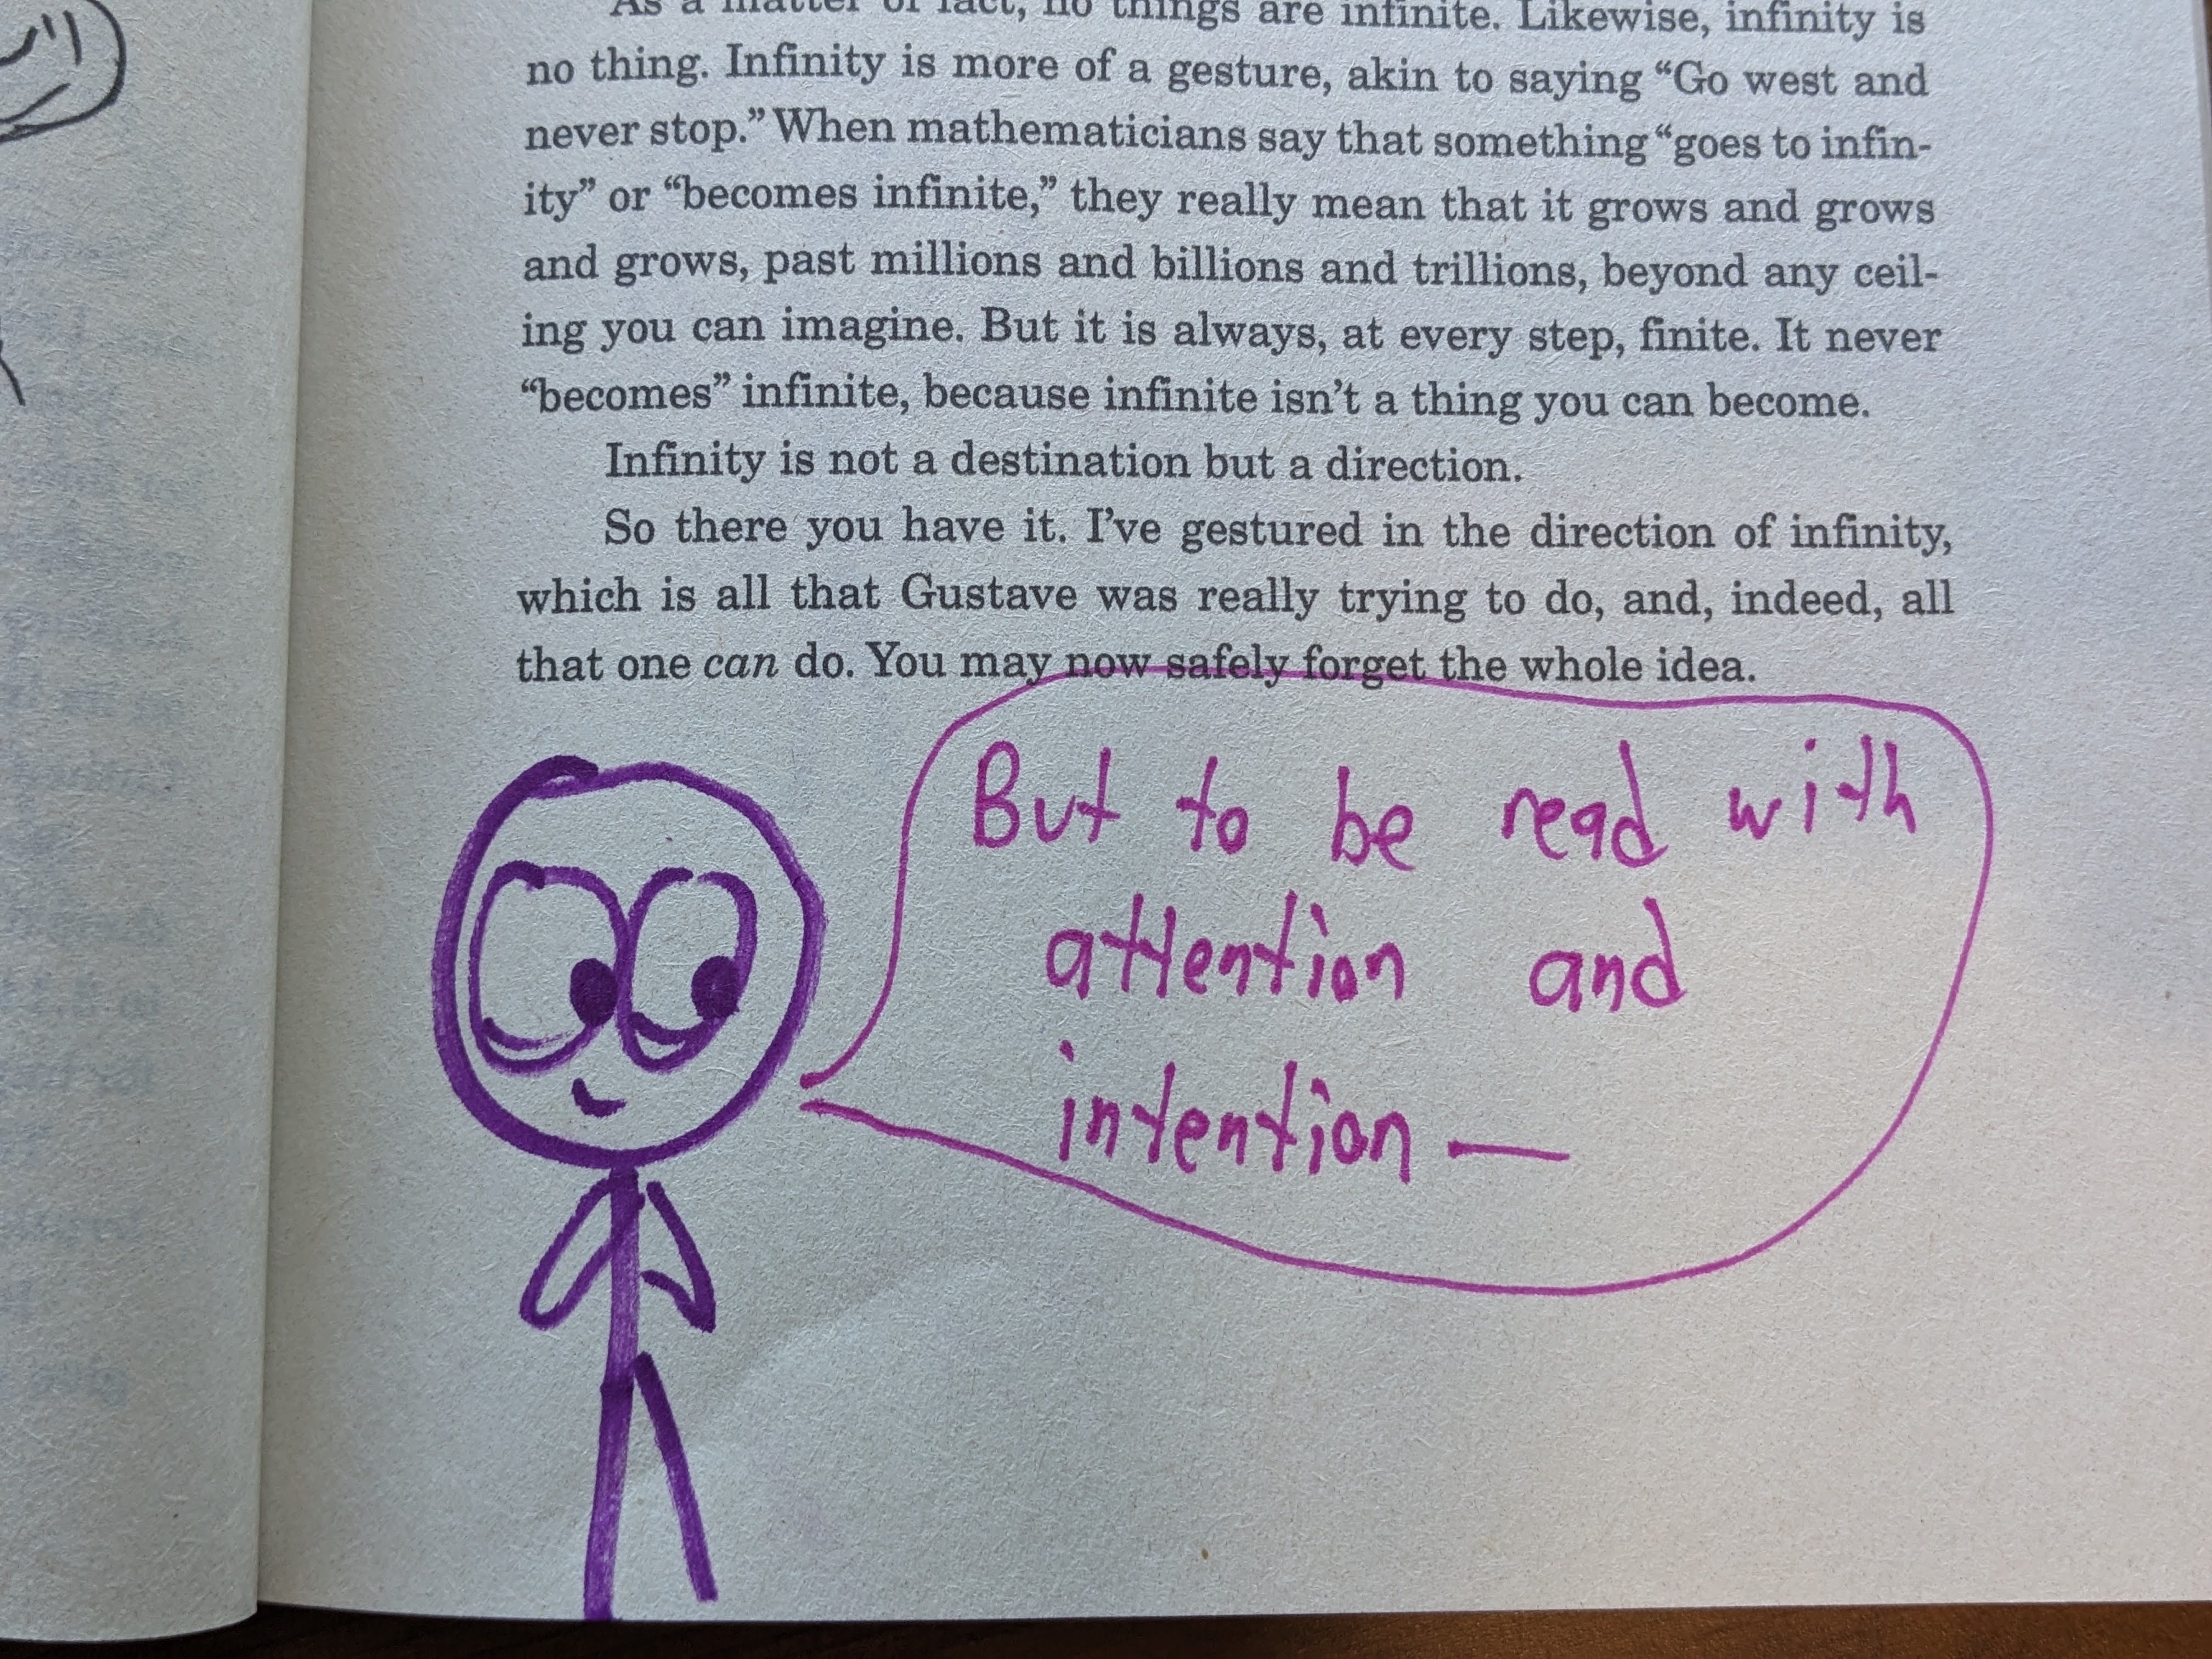 As a matter of fact, no things are infinite. Likewise, infinity is
no thing. Infinity is more of a gesture, akin to saying “Go west and
never stop.” When mathematicians say that something “goes to infin-
ity” or “becomes infinite,” they really mean that it grows and grows
and grows, past millions and billions and trillions, beyond any ceil-
ing you can imagine. But it is always, at every step, finite. It never
“becomes” infinite, because infinite isn’t a thing you can become.
Infinity is not a destination but a direction.
So there you have it. I’ve gestured in the direction of infinity,
which is all that Gustave was really trying to do, and, indeed, all
that one can do. You may now safely forget the whole idea.
But to be read with
attention and
intention —